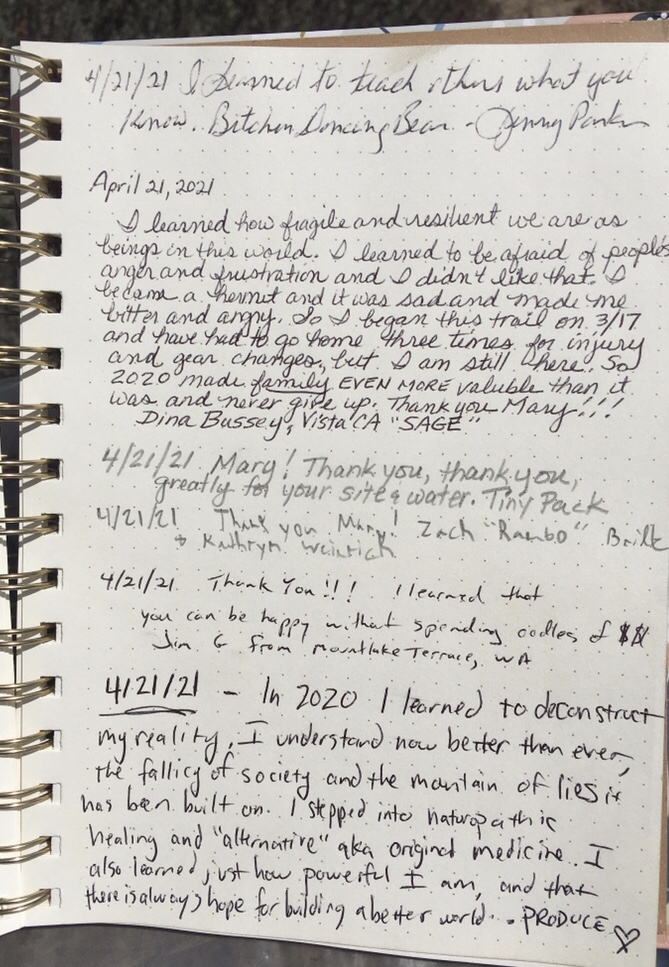 4/21/21 I learned to teach others what you
Know. Bitchen Dancing Bear - Jenny Parker
April 21, 2021
I learned how fragile and resilient we are as
beings in this world. I learned to be afraid of people's
anger and frustration and I didn't like that. I
became a hermit and it was sad and made me
bitter and angry. So I began this trail on 3/17
and have had to go home three times for injury
and gear changes, but I am still here. So
2020 made family EVEN MORE valuble than it
was and never give up. Thank you Mary!!!
Dina Bussey, Vista CA "SAGE"
4/21/21 Mary! Thank you, thank you,
greatly for your site & water. Tiny Pack
4/21/21 Thank you Mary! Zach "Rambo"
& Kathryn Weinrich
4/21/21 Thank You!!! I learned that
you can be happy without spending oodles of $$
Jim G from Mountlake Terrace, WA
4/21/21 - In 2020 I learned to deconstruct
my reality, I understand now better than ever,
the fallicy of society and the mountain of lies it
has been built on. I stepped into naturopathic
healing and "alternative" aka original medicine. I
also learned just how powerful I am, and that
there is always hope for building a better world. - PRODUCE ♡